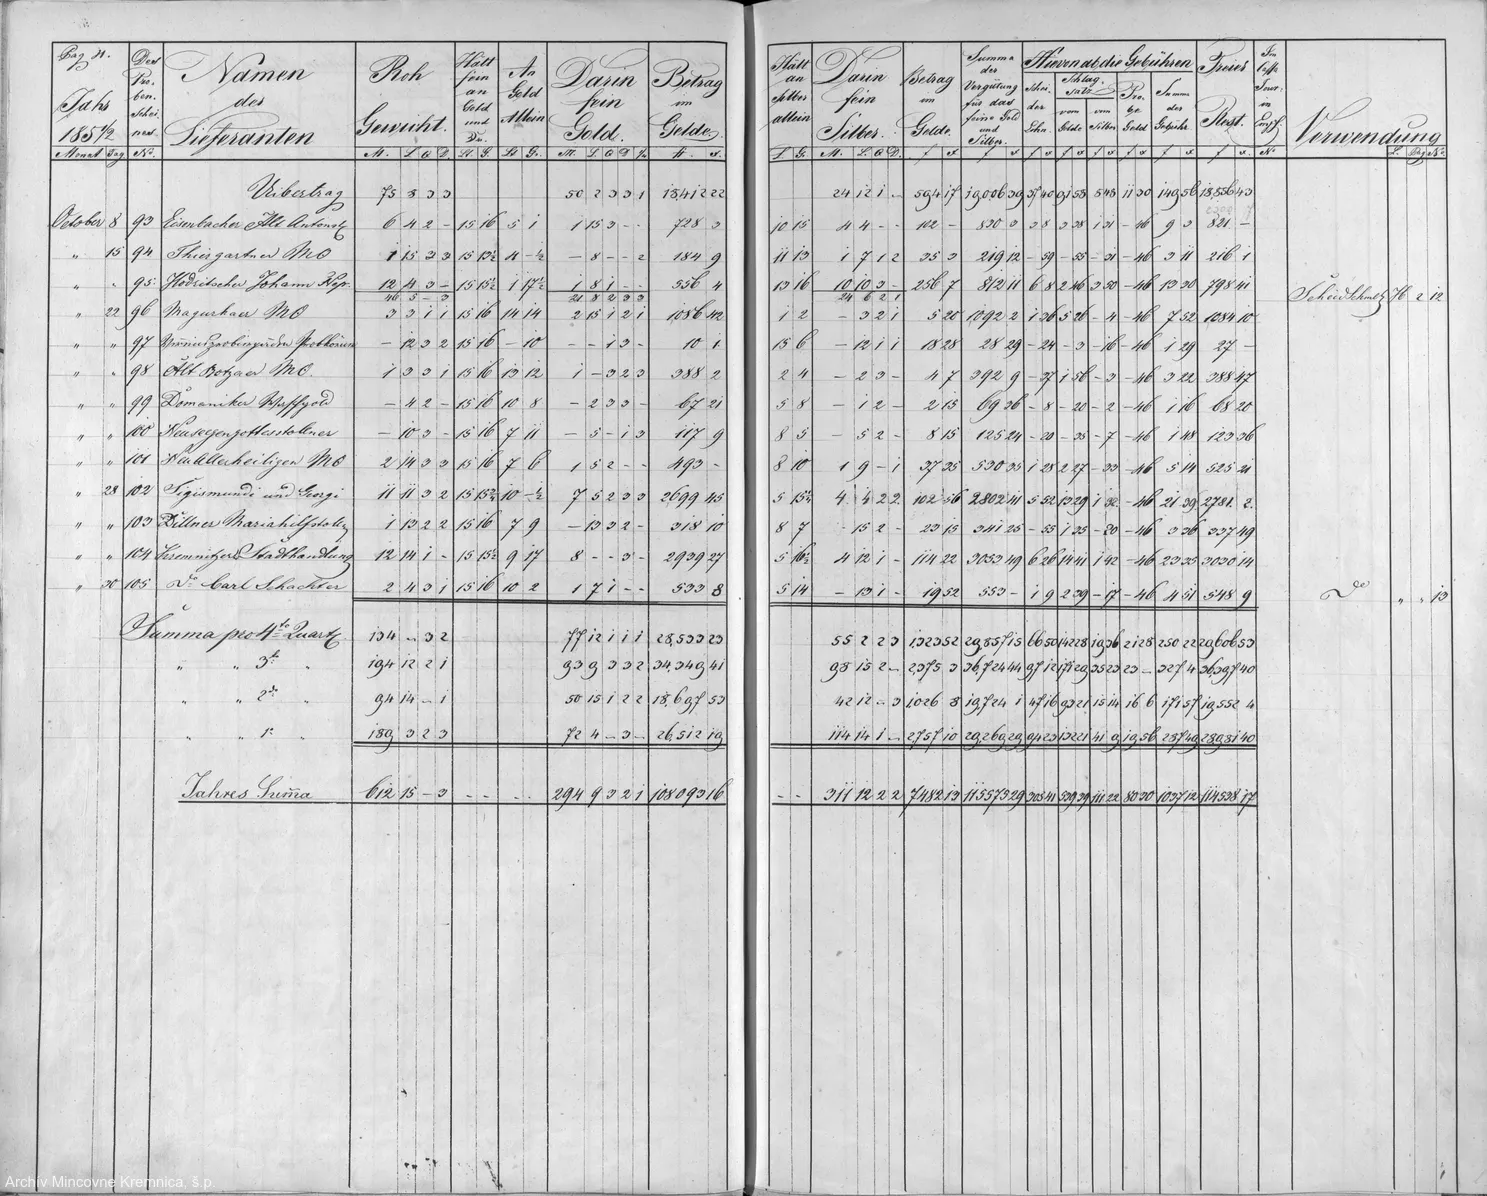 Tag
Jahr
185 1/2
Monat Tag
Des Proben-Scheines
No.
Namen
der
Lieferanten
Roh
Gewicht.
M. L Q D
Hält fein an Gold und
Lt G.
An Gold Allein
Lt Gr.
Darin
fein
Gold.
M. L. Q D
Betrag
im
Gelde
fr. x.
Hält an Silber allein
L G.
Darin
fein
Silber.
M. L. Q D.
Betrag
im
Gelde.
f x
Summa der Vergütung für das feine Gold und Silber.
f x
Hievon ab die Gebühren
Schlag-satz.
vom Golde
vom Silber
Probe Gold
Summe der Gebühr.
Freier
Rest.
f x.
No
Verwendung
L. Tag No.
Uibertrag 75 8 3 3 50 2 3 3 1 18,412 22 24 12 1 - 594 17 19,006 39 37 40 91 58 8 48 11 30 149 56 18,856 43
October 8 93 Eisenbacher Alt Antonst 6 4 2 - 15 16 5 1 1 15 3 - - 728 3 10 15 4 4 - - 102 - 830 3 3 8 3 38 1 31 - 46 9 3 821 -
" 15 94 Thiergartner MO 1 15 3 3 15 15½ 4 -½ - 8 - - 2 184 9 11 13 1 7 1 2 35 3 219 12 - 59 - 55 - 31 - 46 3 11 216 1
" " 95 Hodritscher Johann Nep. 12 4 3 - 15 15½ 1 17½ 1 8 1 - - 556 4 13 16 10 10 3 - 256 7 812 11 6 8 2 46 3 50 - 46 13 30 798 41
46 5 - 3 21 8 2 3 3 24 6 2 1 Scheid Schmelz 76 2 12
" 22 96 Magurkaer MO 3 3 1 1 15 16 14 14 2 15 1 2 1 1086 42 1 2 - 3 2 1 5 20 1092 2 1 36 5 26 - 4 - 46 7 52 1084 10
" " 97 - 12 3 2 15 16 - 10 - - 1 3 - 10 1 15 6 - 12 1 1 18 28 28 29 - 24 - 3 - 16 - 46 1 29 27 -
" " 98 Alt Botzaer MO. 1 3 3 1 15 16 13 12 1 - 3 2 3 388 2 2 4 - 2 3 - 4 7 392 9 - 37 1 56 - 3 - 46 3 22 388 47
" " 99 Domaniker Waschgold - 4 2 - 15 16 10 8 - 2 3 3 - 67 21 5 8 - 1 2 - 2 15 69 36 - 8 - 20 - 2 - 46 1 16 68 20
" " 100 Neusegengottesstollner - 10 3 - 15 16 7 11 - 5 - 1 3 117 9 8 5 - 5 2 - 8 15 125 24 - 20 - 35 - 7 - 46 1 48 123 36
" " 101 Neu Allerheiligen MO 2 14 3 3 15 16 7 6 1 5 2 - - 493 - 8 10 1 9 - 1 37 35 530 35 1 28 2 27 - 33 - 46 5 14 525 21
" 28 102 Sigismundi und Georgi 11 11 3 2 15 15¾ 10 -½ 7 5 2 3 3 2699 45 5 15½ 4 4 2 2 102 56 2802 41 5 52 13 29 1 32 - 46 21 39 2781 2
" " 103 Dillner Mariahilfstolln 1 13 2 2 15 16 7 9 - 13 3 2 - 318 10 8 7 - 15 2 - 23 15 341 25 - 55 1 35 - 20 - 46 3 36 337 49
" " 104 Kremnitzer Stadthandlung 12 14 1 - 15 15½ 9 17 8 - - 3 - 2939 27 5 16½ 4 12 1 - 114 22 3053 49 6 26 14 41 1 42 - 46 23 35 3030 14
" 30 105 Do Carl Schachter 2 4 3 1 15 16 10 2 1 7 1 - - 533 8 5 14 - 13 1 - 19 52 553 - 1 9 2 39 - 17 - 46 4 51 548 9 Do " " 13
Summa pro 4te Quart. 134 - 3 2 77 12 1 1 1 28,533 23 55 2 2 3 1,323 52 29,857 15 66 50 142 8 19 36 21 28 250 22 29,606 53
" " 3t " 194 12 2 1 93 9 3 3 2 34,349 41 98 15 2 - 2,375 3 36,724 44 97 12 171 29 35 23 23 - 327 4 36,397 40
" " 2te " 94 14 - 1 50 15 1 2 2 18,697 53 42 12 - 3 1026 8 19,724 1 47 16 93 21 15 14 16 6 171 57 19,552 4
" " 1t " 189 3 2 3 72 4 - 3 - 26,512 19 114 14 1 - 2757 10 29,269 29 94 23 132 21 41 9 19 56 287 49 28981 40
Jahres Suma 612 15 - 3 - - - - 294 9 3 2 1 108093 16 - - 311 12 2 2 7482 13 115573 29 305 41 539 39 111 22 80 30 1037 12 114538 17
Archív Mincovne Kremnica, š.p.